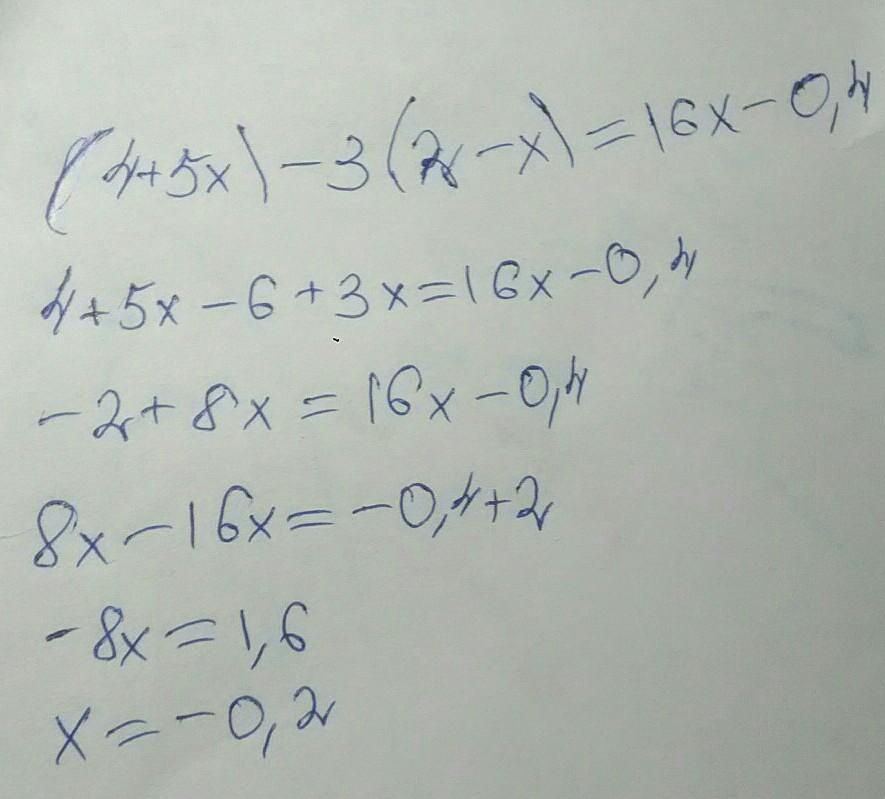 (4+5x)-3(2-x)=16x-0,4
4+5x-6+3x=16x-0,4
-2+8x=16x-0,4
8x-16x=-0,4+2
-8x=1,6
x=-0,2